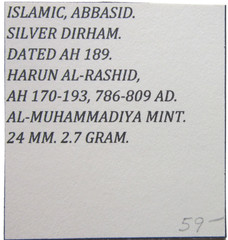 ISLAMIC, ABBASID.
SILVER DIRHAM.
DATED AH 189.
HARUN AL-RASHID,
AH 170-193, 786-809 AD.
AL-MUHAMMADIYA MINT.
24 MM. 2.7 GRAM.
59-